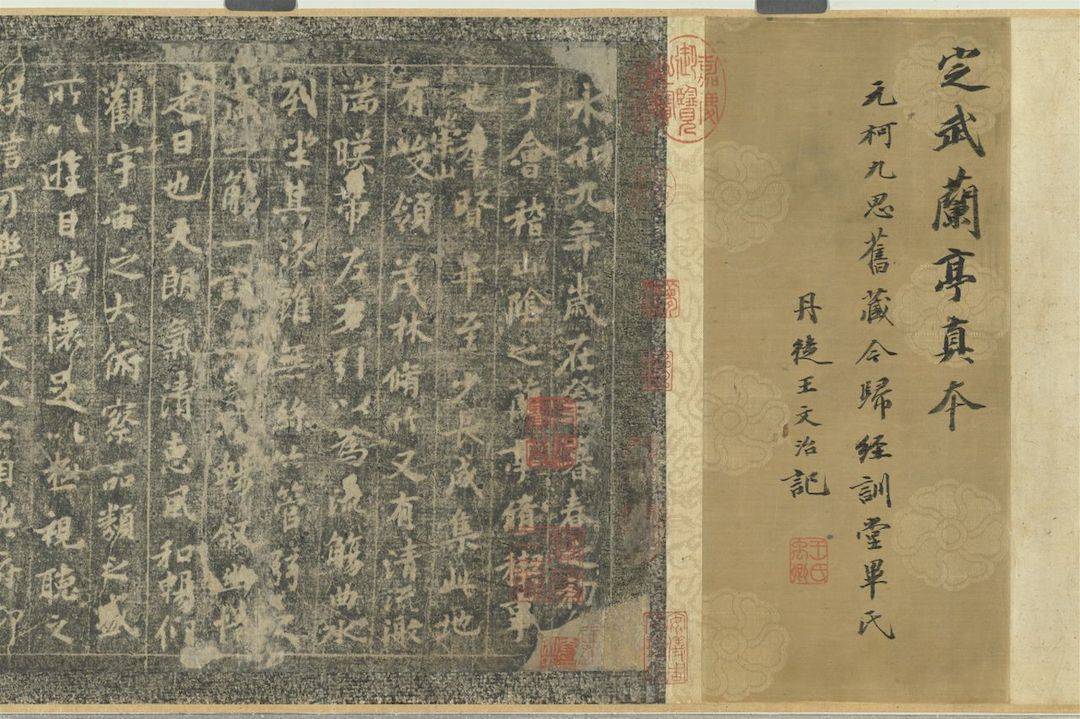 定武蘭亭真本
元柯九思舊藏今歸經訓堂畢氏
丹徒王文治記
王氏禹卿
嘉慶御覽之寶
永和九年歲在暮春之初
于會稽山陰之蘭亭脩稧事
也羣賢畢至少長咸集此地
有崇山峻領茂林脩竹又有清流激
湍暎帶左右引以為流觴曲水
列坐其次雖無絲竹管弦之
盛一觴一詠亦足以暢叙幽情
是日也天朗氣清惠風和暢仰
觀宇宙之大俯察品類之盛
所以遊目騁懷足以極視聽之
娱信可樂也夫人之相與俯仰